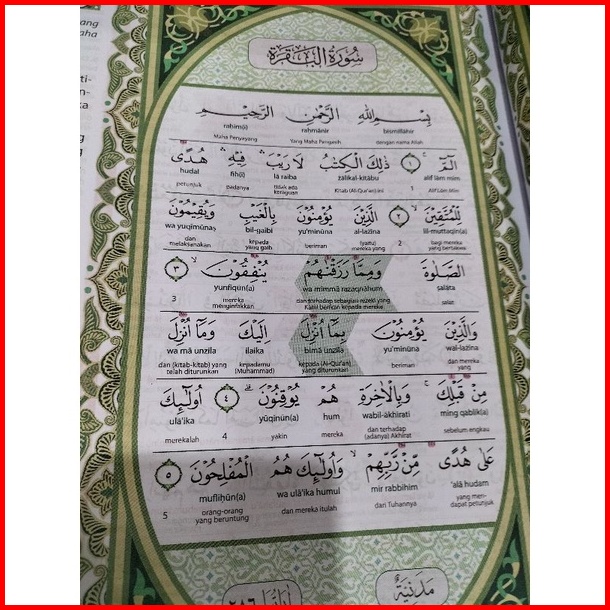 سُورَةُ الْبَقَرَةِ
بِسْمِ اللّٰهِ الرَّحْمٰنِ الرَّحِيْمِ
bismillāhir raḥmānir raḥīm(i)
dengan nama Allah Yang Maha Pengasih Maha Penyayang
الٓمّٓ ۚ ١ ذٰلِكَ الْكِتٰبُ لَا رَيْبَ ۛ فِيْهِ ۛ هُدًى
alif lām mīm 1 żālikal-kitābu lā raiba fīh(i) hudal
Alif Lām Mīm Kitab (Al-Qur'an) ini tidak ada keraguan padanya petunjuk
لِّلْمُتَّقِيْنَ ۙ ٢ الَّذِيْنَ يُؤْمِنُوْنَ بِالْغَيْبِ وَيُقِيْمُوْنَ
lil-muttaqīn(a) 2 al-lażīna yu'minūna bil-gaibi wa yuqīmūnaṣ
bagi mereka yang bertakwa (yaitu) mereka yang beriman kepada yang gaib dan melaksanakan
الصَّلٰوةَ وَمِمَّا رَزَقْنٰهُمْ يُنْفِقُوْنَ ۙ ٣
salāta wa mimmā razaqnāhum yunfiqūn(a) 3
salat dan terhadap sebagian rezeki yang Kami berikan kepada mereka mereka menginfakkan
وَالَّذِيْنَ يُؤْمِنُوْنَ بِمَآ اُنْزِلَ اِلَيْكَ وَمَآ اُنْزِلَ
wal-lażīna yu'minūna bimā unzila ilaika wa mā unzila
dan mereka yang beriman kepada (Al-Qur'an) yang diturunkan kepadamu (Muhammad) dan (kitab-kitab) yang telah diturunkan
مِنْ قَبْلِكَ ۚ وَبِالْاٰخِرَةِ هُمْ يُوْقِنُوْنَ ۗ ٤ اُولٰۤىِٕكَ
ming qablik(a) wabil-ākhirati hum yūqinūn(a) 4 ulā'ika
sebelum engkau dan terhadap (adanya) Akhirat mereka yakin merekalah
عَلٰى هُدًى مِّنْ رَّبِّهِمْ ۙ وَاُولٰۤىِٕكَ هُمُ الْمُفْلِحُوْنَ ٥
'alā hudam mir rabbihim wa ulā'ika humul mufliḥūn(a) 5
yang mendapat petunjuk dari Tuhannya dan mereka itulah orang-orang yang beruntung
مَدَنِيَّةٌ